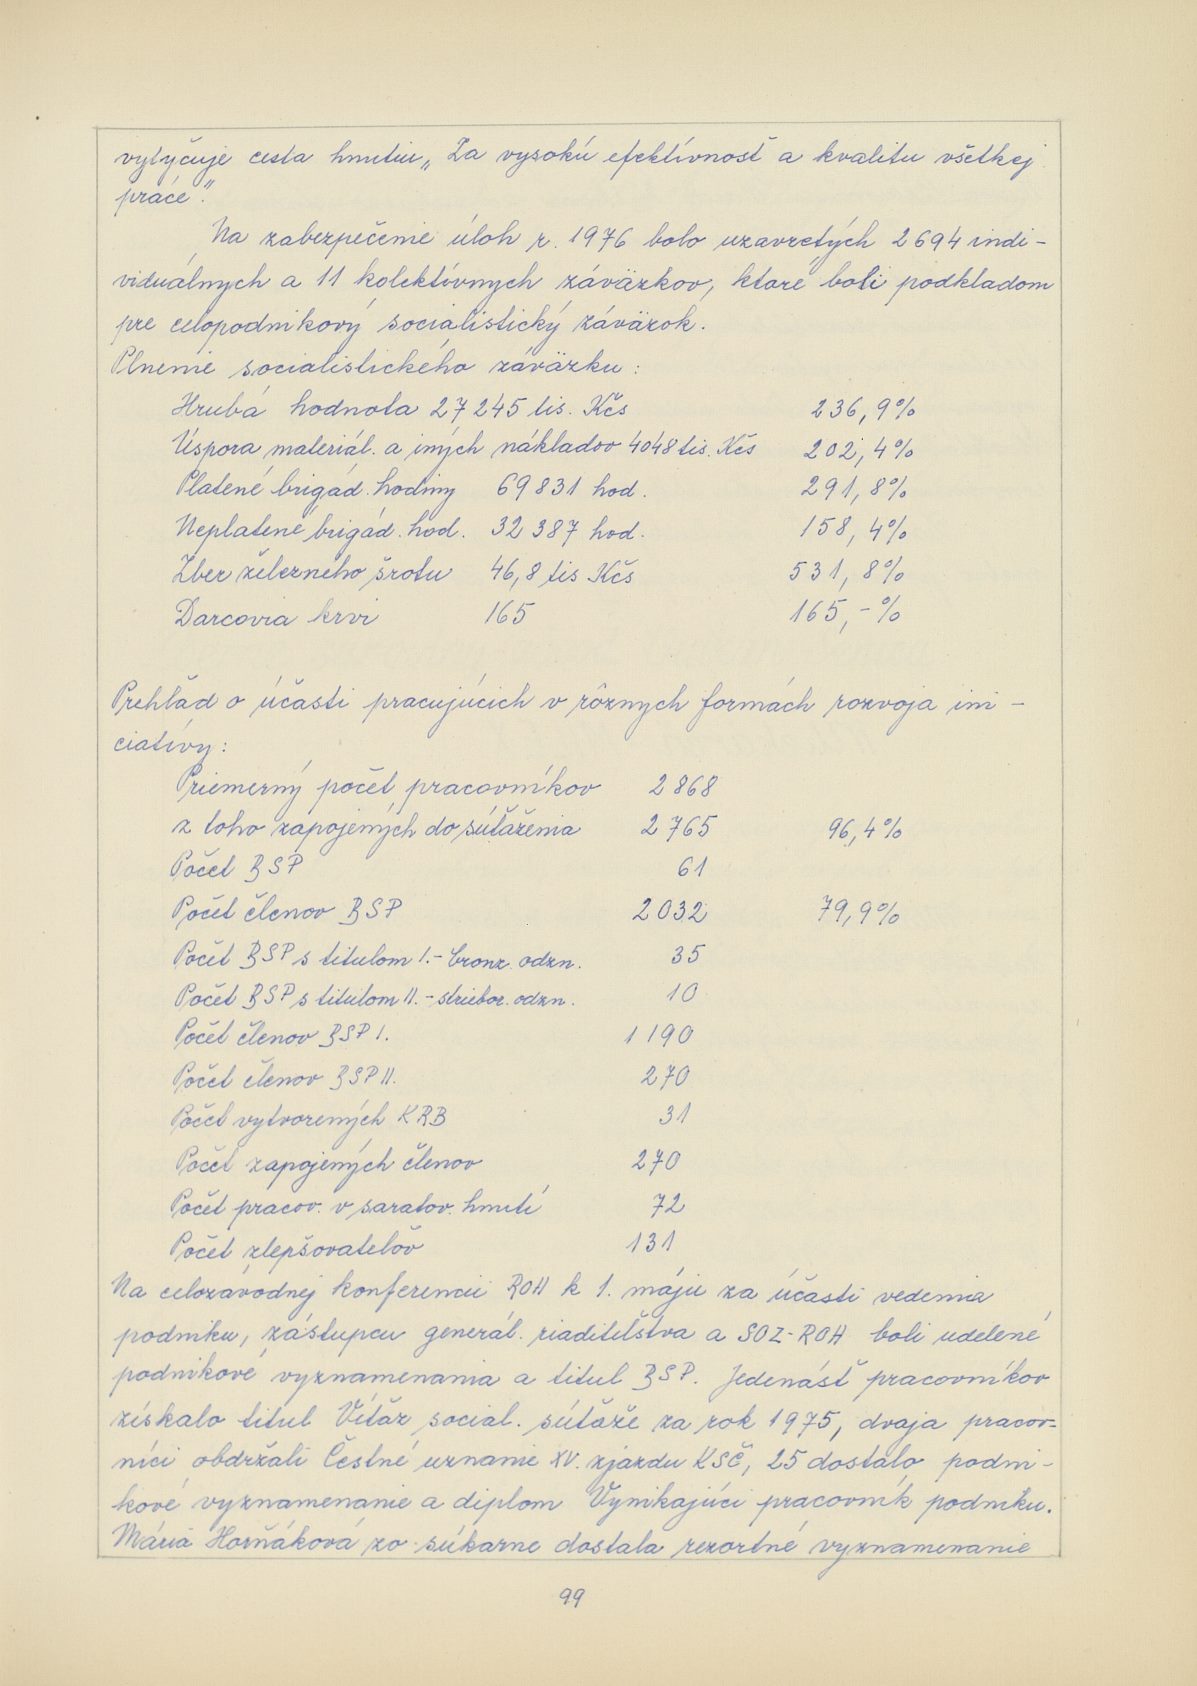 vytyčuje cesta hnutiu „Za vysokú efektívnosť a kvalitu všetkej
práce".
Na zabezpečenie úloh r. 1976 bolo uzavretých 2 694 indi-
viduálnych a 11 kolektívnych záväzkov, ktoré boli podkladom
pre celopodnikový socialistický záväzok.
Plnenie socialistického záväzku:
Hrubá hodnota 27 245 tis. Kčs 236,9%
Úspora materiál. a iných nákladov 4048 tis. Kčs 202,4%
Platené brigád. hodiny 69 831 hod. 291,8%
Neplatené brigád. hod. 32 387 hod. 158,4%
Zber železného šrotu 46,8 tis Kčs 531,8%
Darcovia krvi 165 165,-%
Prehľad o účasti pracujúcich v rôznych formách rozvoja ini-
ciatívy:
Priemerný počet pracovníkov 2 868
z toho zapojených do súťaženia 2 765 96,4%
Počet BSP 61
Počet členov BSP 2 032 79,9%
Počet BSP s titulom I.- bronz. odzn. 35
Počet BSP s titulom II.- striebor. odzn. 10
Počet členov BSP I. 1 190
Počet členov BSP II. 270
Počet vytvorených KRB 31
Počet zapojených členov 270
Počet pracov. v saratov. hnutí 72
Počet zlepšovateľov 131
Na celozávodnej konferencii ROH k 1. máju za účasti vedenia
podniku, zástupcu generál. riaditeľstva a SOZ-ROH boli udelené
podnikové vyznamenania a titul BSP. Jedenásť pracovníkov
získalo titul Víťaz social. súťaže za rok 1975, dvaja pracov=
níci obdržali Čestné uznanie XV. zjazdu KSČ, 25 dostalo podni-
kové vyznamenanie a diplom Vynikajúci pracovník podniku.
Mária Horňáková zo súkarne dostala rezortné vyznamenanie
99